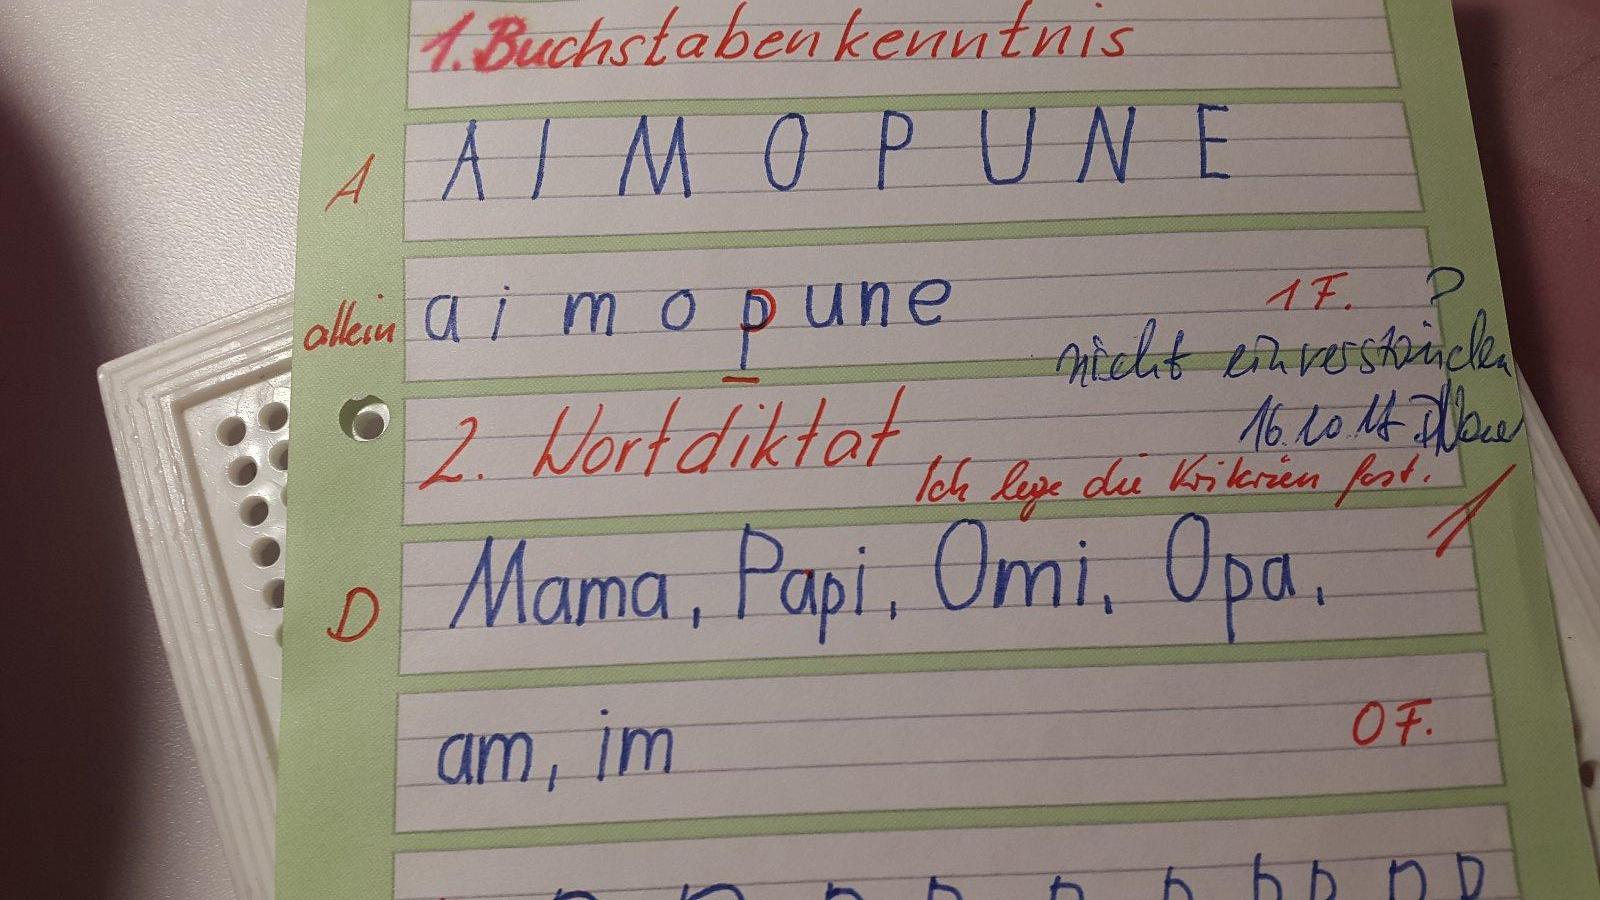 1. Buchstabenkenntnis
A A I M O P U N E
allein a i m o p u n e 1 F. ?
nicht einverstanden
2. Wortdiktat 16.10.
Ich lege die Kriterien fest.
1
D Mama, Papi, Omi, Opa,
am, im 0 F.